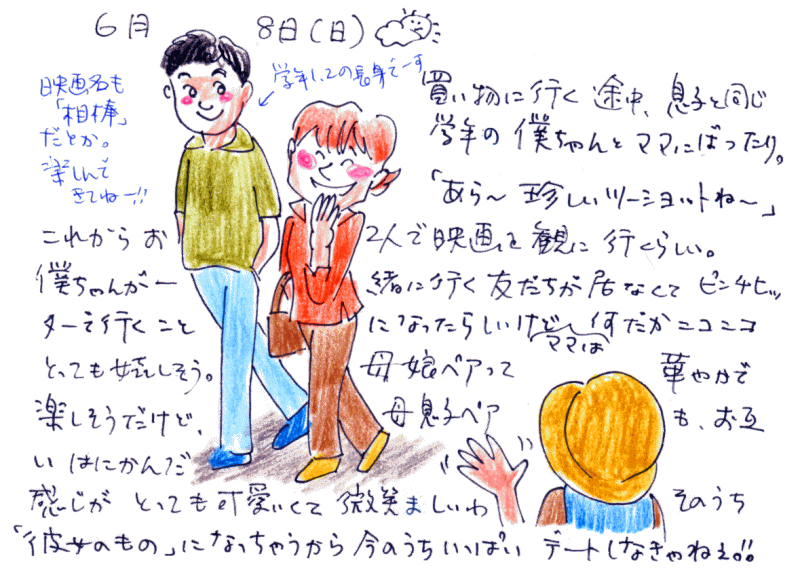 6月 8日(日)
学年1、2の長身でーす
映画名も
「相棒」
だとか。
楽しんで
きてねー!!
買い物に行く途中、息子と同じ
学年の僕ちゃんとママにばったり。
「あら〜 珍しいツーショットね〜」
これからお2人で映画を観に行くらしい。
僕ちゃんが一緒に行く友だちが居なくてピンチヒッ
ターで行くことになったらしいけど、ママは何だかニコニコ
とっても嬉しそう。母娘ペアって華やかで
楽しそうだけど、母息子ペアも、お互
いはにかんだ
感じがとっても可愛いくて微笑ましいわ そのうち
「彼女のもの」になっちゃうから今のうちいっぱいデートしなきゃねぇ!!